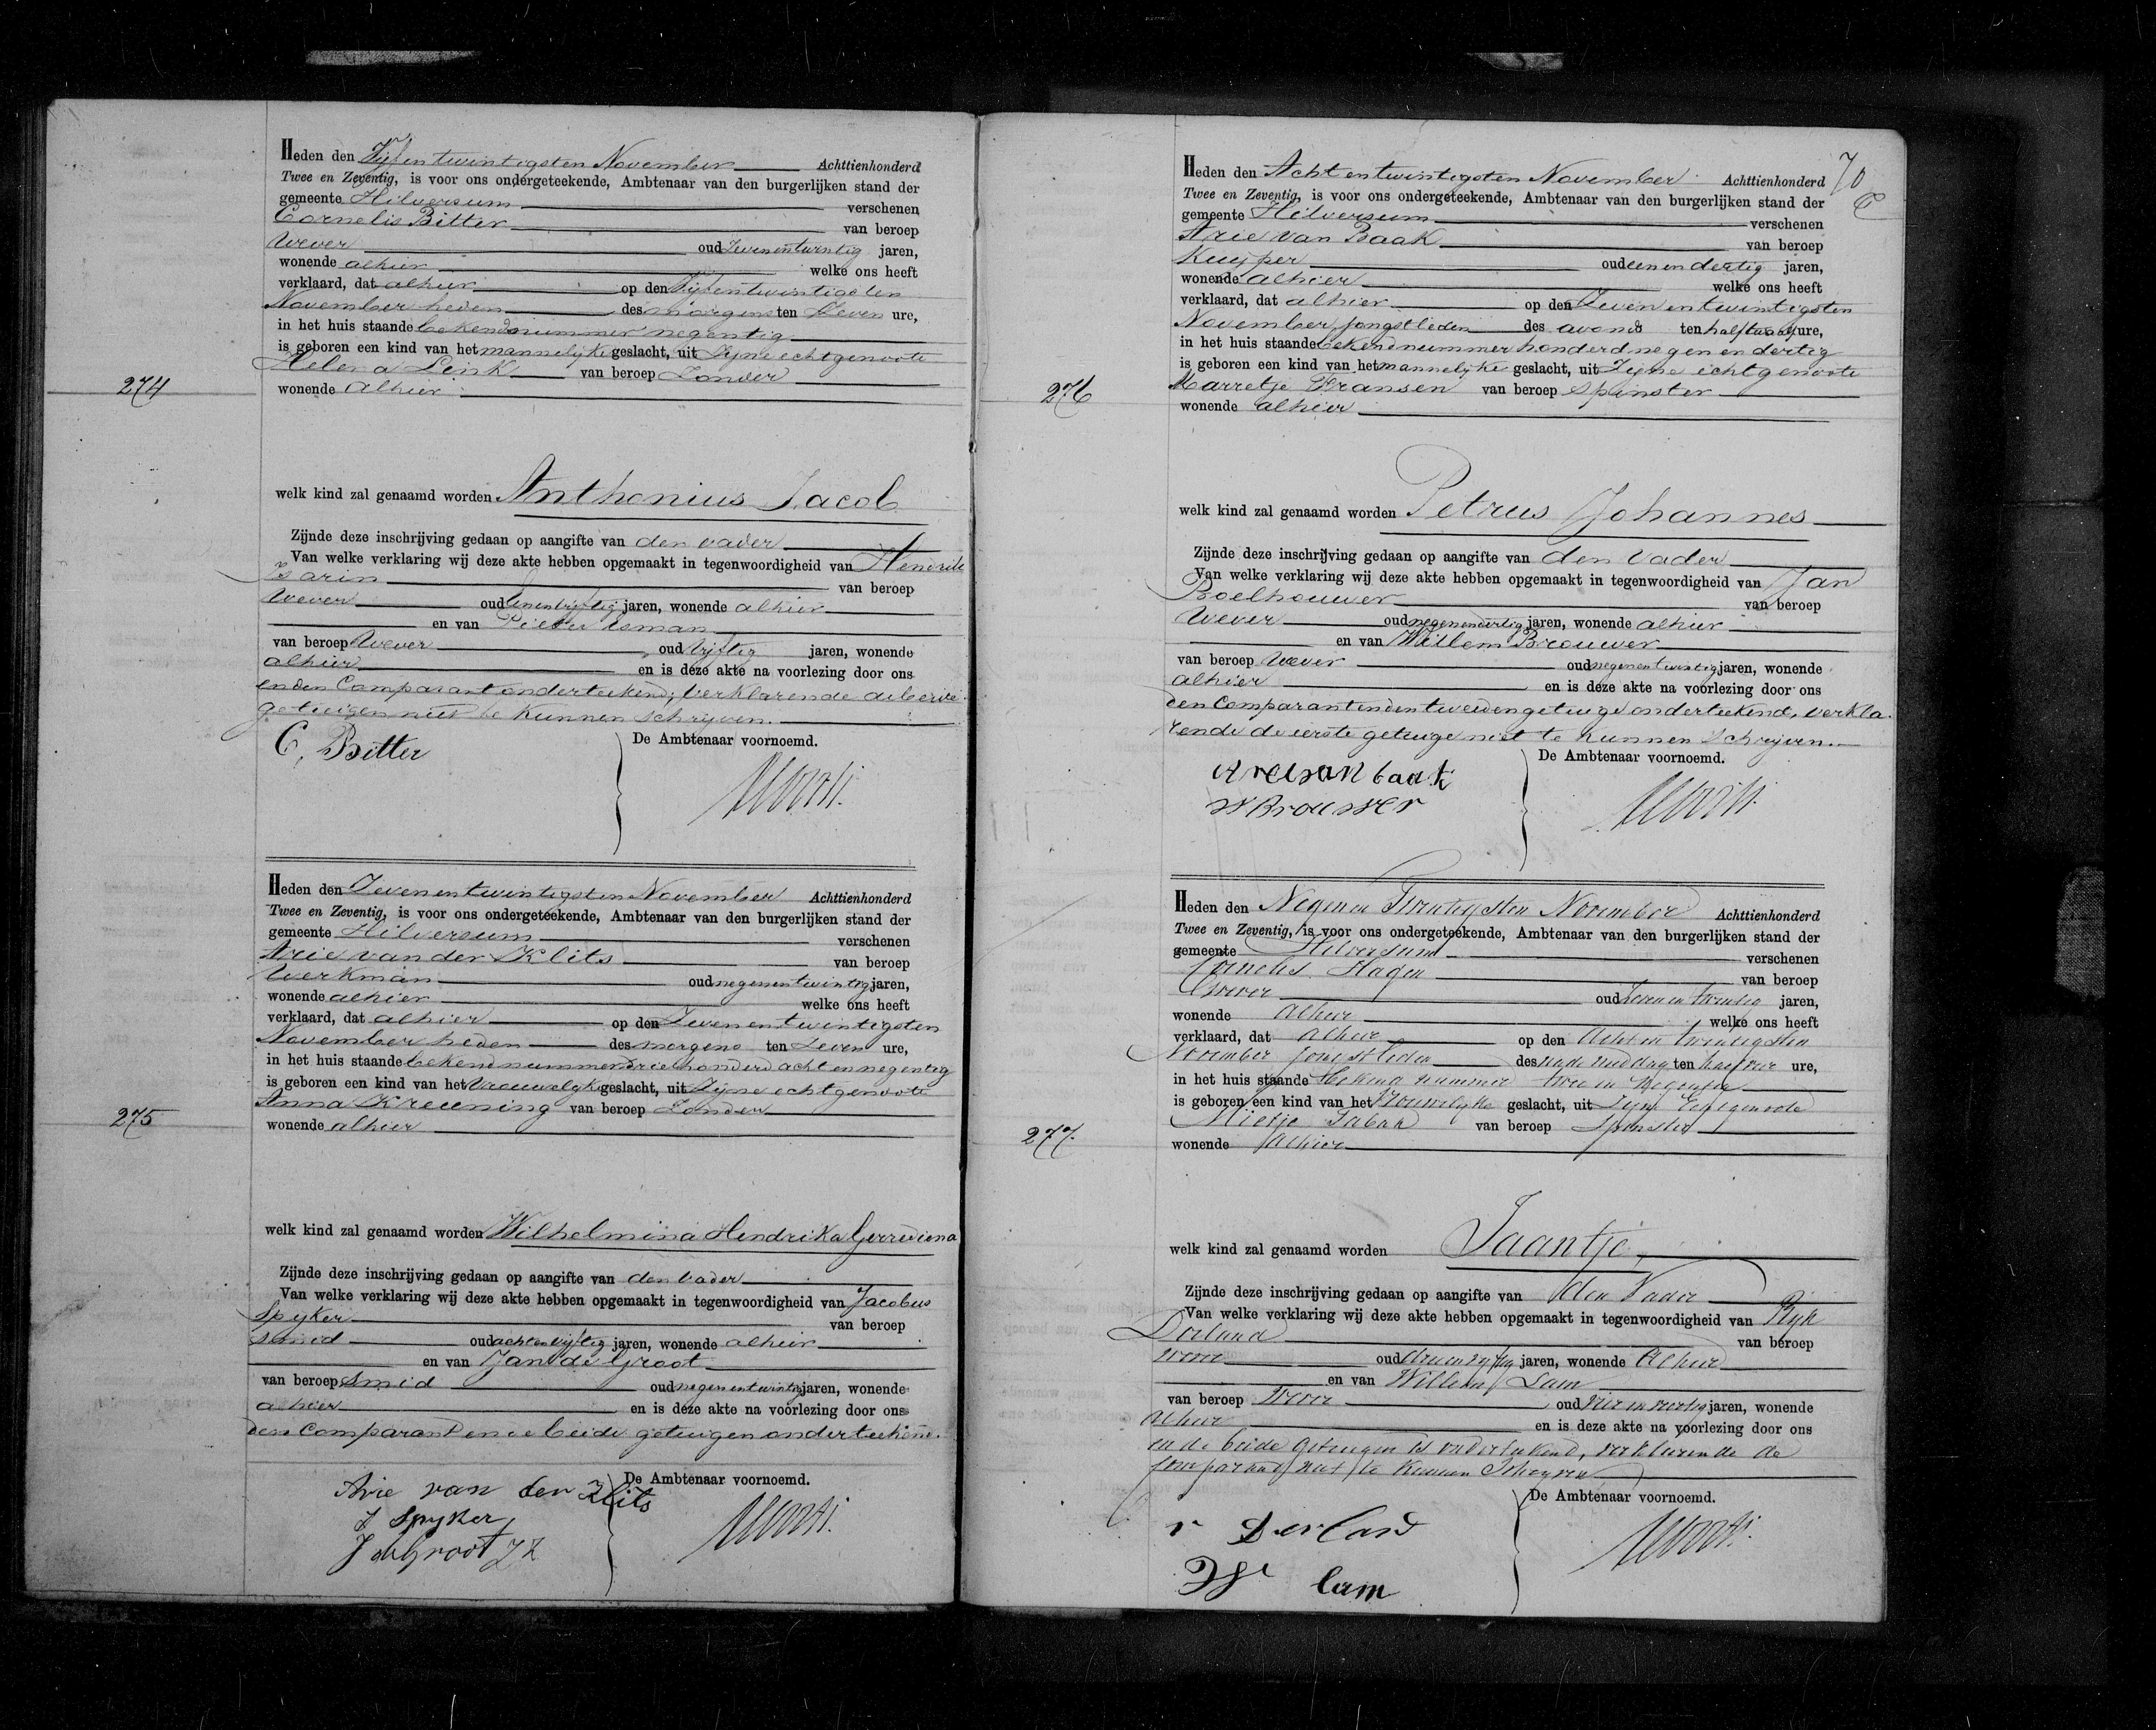 Heden den Vijfentwintigsten November Achttienhonderd
Twee en Zeventig, is voor ons ondergeteekende, Ambtenaar van den burgerlijken stand der
gemeente Hilversum verschenen
Cornelis Bitter van beroep
Wever oud Zevenentwintig jaren,
wonende alhier welke ons heeft
verklaard, dat alhier op den Vijfentwintigsten
November heden des morgens ten Zeven ure,
in het huis staande bekend nummer negentig
is geboren een kind van het mannelijke geslacht, uit Zijne echtgenoote
Helena Lenk van beroep Zonder
274
wonende alhier
welk kind zal genaamd worden Anthonius Jacob
Zijnde deze inschrijving gedaan op aangifte van den vader
Van welke verklaring wij deze akte hebben opgemaakt in tegenwoordigheid van Hendrik
van beroep
Wever oud jaren, wonende alhier
en van Pieter
van beroep Wever oud Vijftig jaren, wonende
alhier en is deze akte na voorlezing door ons
en den Comparant onderteekend, verklarende de beide
getuigen niet te kunnen schrijven.
C. Bitter
De Ambtenaar voornoemd.
Heden den Zevenentwintigsten November Achttienhonderd
Twee en Zeventig, is voor ons ondergeteekende, Ambtenaar van den burgerlijken stand der
gemeente Hilversum verschenen
Arie van der Klits van beroep
Werkman oud negenentwintig jaren,
wonende alhier welke ons heeft
verklaard, dat alhier op den Zevenentwintigsten
November heden des morgens ten Zeven ure,
in het huis staande bekend nummer driehonderd acht en negentig
is geboren een kind van het Vrouwelijke geslacht, uit Zijne echtgenoote
Anna Kreuning van beroep Zonder
275
wonende alhier
welk kind zal genaamd worden Wilhelmina Hendrika Gerrediena
Zijnde deze inschrijving gedaan op aangifte van den Vader
Van welke verklaring wij deze akte hebben opgemaakt in tegenwoordigheid van Jacobus
Spijker van beroep
smid oud achtenvijftig jaren, wonende alhier
en van Jan de Groot
van beroep smid oud negenentwintig jaren, wonende
alhier en is deze akte na voorlezing door ons
den Comparant en de beide getuigen onderteekend.
Arie van der Klits
J Spyker
J de Groot JZ
De Ambtenaar voornoemd.
70
Heden den Acht entwintigsten November Achttienhonderd
Twee en Zeventig, is voor ons ondergeteekende, Ambtenaar van den burgerlijken stand der
gemeente Hilversum verschenen
Arie van Baak van beroep
Kuijper oud eenendertig jaren,
wonende alhier welke ons heeft
verklaard, dat alhier op den Zevenentwintigsten
November jongstleden des avonds ten half twaalf ure,
in het huis staande bekend nummer honderd negenendertig
is geboren een kind van het mannelijke geslacht, uit Zijne echtgenoote
Marretje Fransen van beroep spinster
276
wonende alhier
welk kind zal genaamd worden Petrus Johannes
Zijnde deze inschrijving gedaan op aangifte van den Vader
Van welke verklaring wij deze akte hebben opgemaakt in tegenwoordigheid van Jan
Boelhouwer van beroep
Wever oud jaren, wonende alhier
en van Willem Brouwer
van beroep Wever oud negenentwintig jaren, wonende
alhier en is deze akte na voorlezing door ons
den Comparant en den tweeden getuige onderteekend, verkla-
rende de eerste getuige niet te kunnen schrijven.
Arie van baak
W Brouwer
De Ambtenaar voornoemd.
Heden den Negen en Twintigsten November Achttienhonderd
Twee en Zeventig, is voor ons ondergeteekende, Ambtenaar van den burgerlijken stand der
gemeente Hilversum verschenen
Cornelis Hagen van beroep
Wever oud Zeven en twintig jaren,
wonende Alhier welke ons heeft
verklaard, dat alhier op den Acht en twintigsten
November jongstleden des nademiddag ten half vier ure,
in het huis staande Bekend nummer Twee en Negentig
is geboren een kind van het Vrouwelijke geslacht, uit Zijne Echtgenoote
Mietje van beroep Spinster
277.
wonende Alhier
welk kind zal genaamd worden Jaantje
Zijnde deze inschrijving gedaan op aangifte van den Vader
Van welke verklaring wij deze akte hebben opgemaakt in tegenwoordigheid van Rijk
Dorland van beroep
wever oud jaren, wonende Alhier
en van Willem Lam
van beroep Wever oud jaren, wonende
alhier en is deze akte na voorlezing door ons
en de beide getuigen is onderteekend, verklarende de
Comparant niet te kunnen Schrijven
r Dorland
W lam
De Ambtenaar voornoemd.